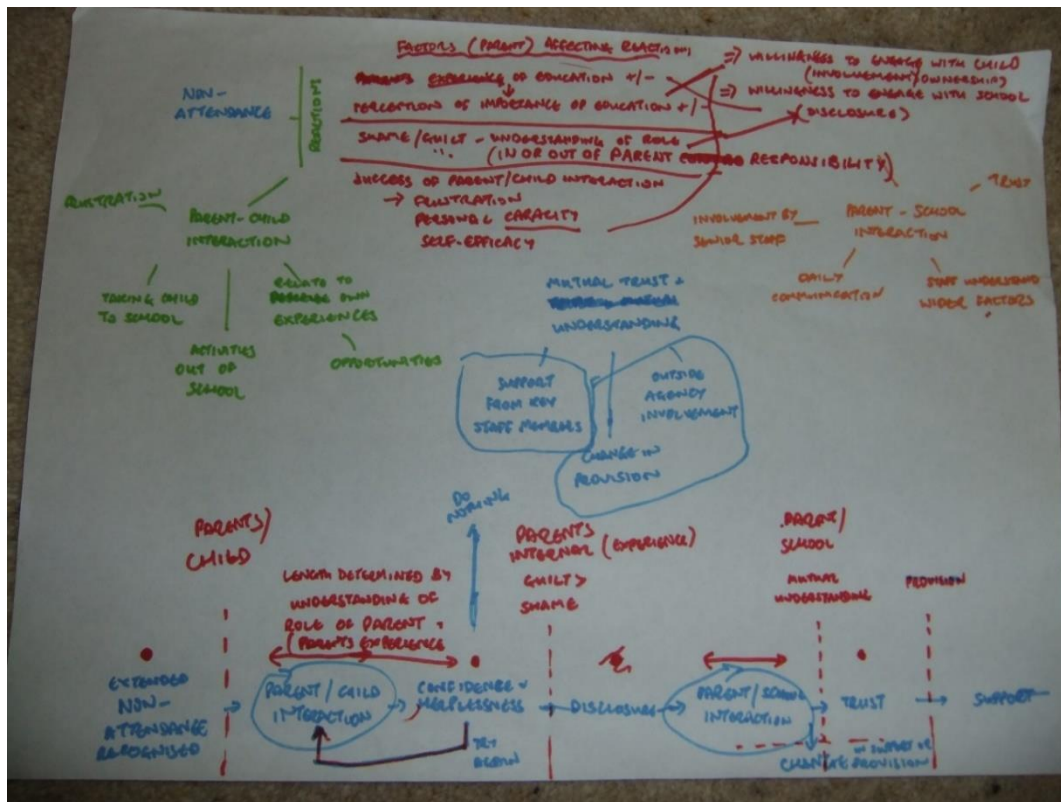 FACTORS (PARENT) AFFECTING REACTIONS
PARENTS EXPERIENCE OF EDUCATION +/-
PERCEPTIONS OF IMPORTANCE OF EDUCATION +/-
SHAME/GUILT - UNDERSTANDING OF ROLE
(IN OR OUT OF PARENT RESPONSIBILITY)
SUCCESS OF PARENT/CHILD INTERACTION
→ FRUSTRATION
PERSONAL CAPACITY
SELF-EFFICACY
=> WILLINGNESS TO ENGAGE WITH CHILD
(INVOLVEMENT/OWNERSHIP)
=> WILLINGNESS TO ENGAGE WITH SCHOOL
(DISCLOSURE)
NON-
ATTENDANCE
REACTIONS
FRUSTRATION
PARENT-CHILD
INTERACTION
TAKING CHILD
TO SCHOOL
ACTIVITIES
OUT OF
SCHOOL
RELATE TO
OWN
EXPERIENCES
OPPORTUNITIES
TRUST
PARENT-SCHOOL
INTERACTION
INVOLVEMENT BY
SENIOR STAFF
DAILY
COMMUNICATION
STAFF UNDERSTAND
WIDER FACTORS
MUTUAL TRUST +
UNDERSTANDING
SUPPORT
FROM KEY
STAFF MEMBERS
OUTSIDE
AGENCY
INVOLVEMENT
CHANGE IN
PROVISION
DO
NOTHING
PARENTS/
CHILD
LENGTH DETERMINED BY
UNDERSTANDING OF
ROLE OF PARENT +
(PARENTS EXPERIENCE
PARENTS
INTERNAL (EXPERIENCE)
GUILT >
SHAME
PARENT/
SCHOOL
MUTUAL
UNDERSTANDING
PROVISION
EXTENDED
NON-
ATTENDANCE
RECOGNISED
→ PARENT/CHILD
INTERACTION
→ CONFIDENCE +
HELPLESSNESS
TRY
AGAIN
→ DISCLOSURE →
PARENT/SCHOOL
INTERACTION
→ TRUST → SUPPORT
CHANGE PROVISION